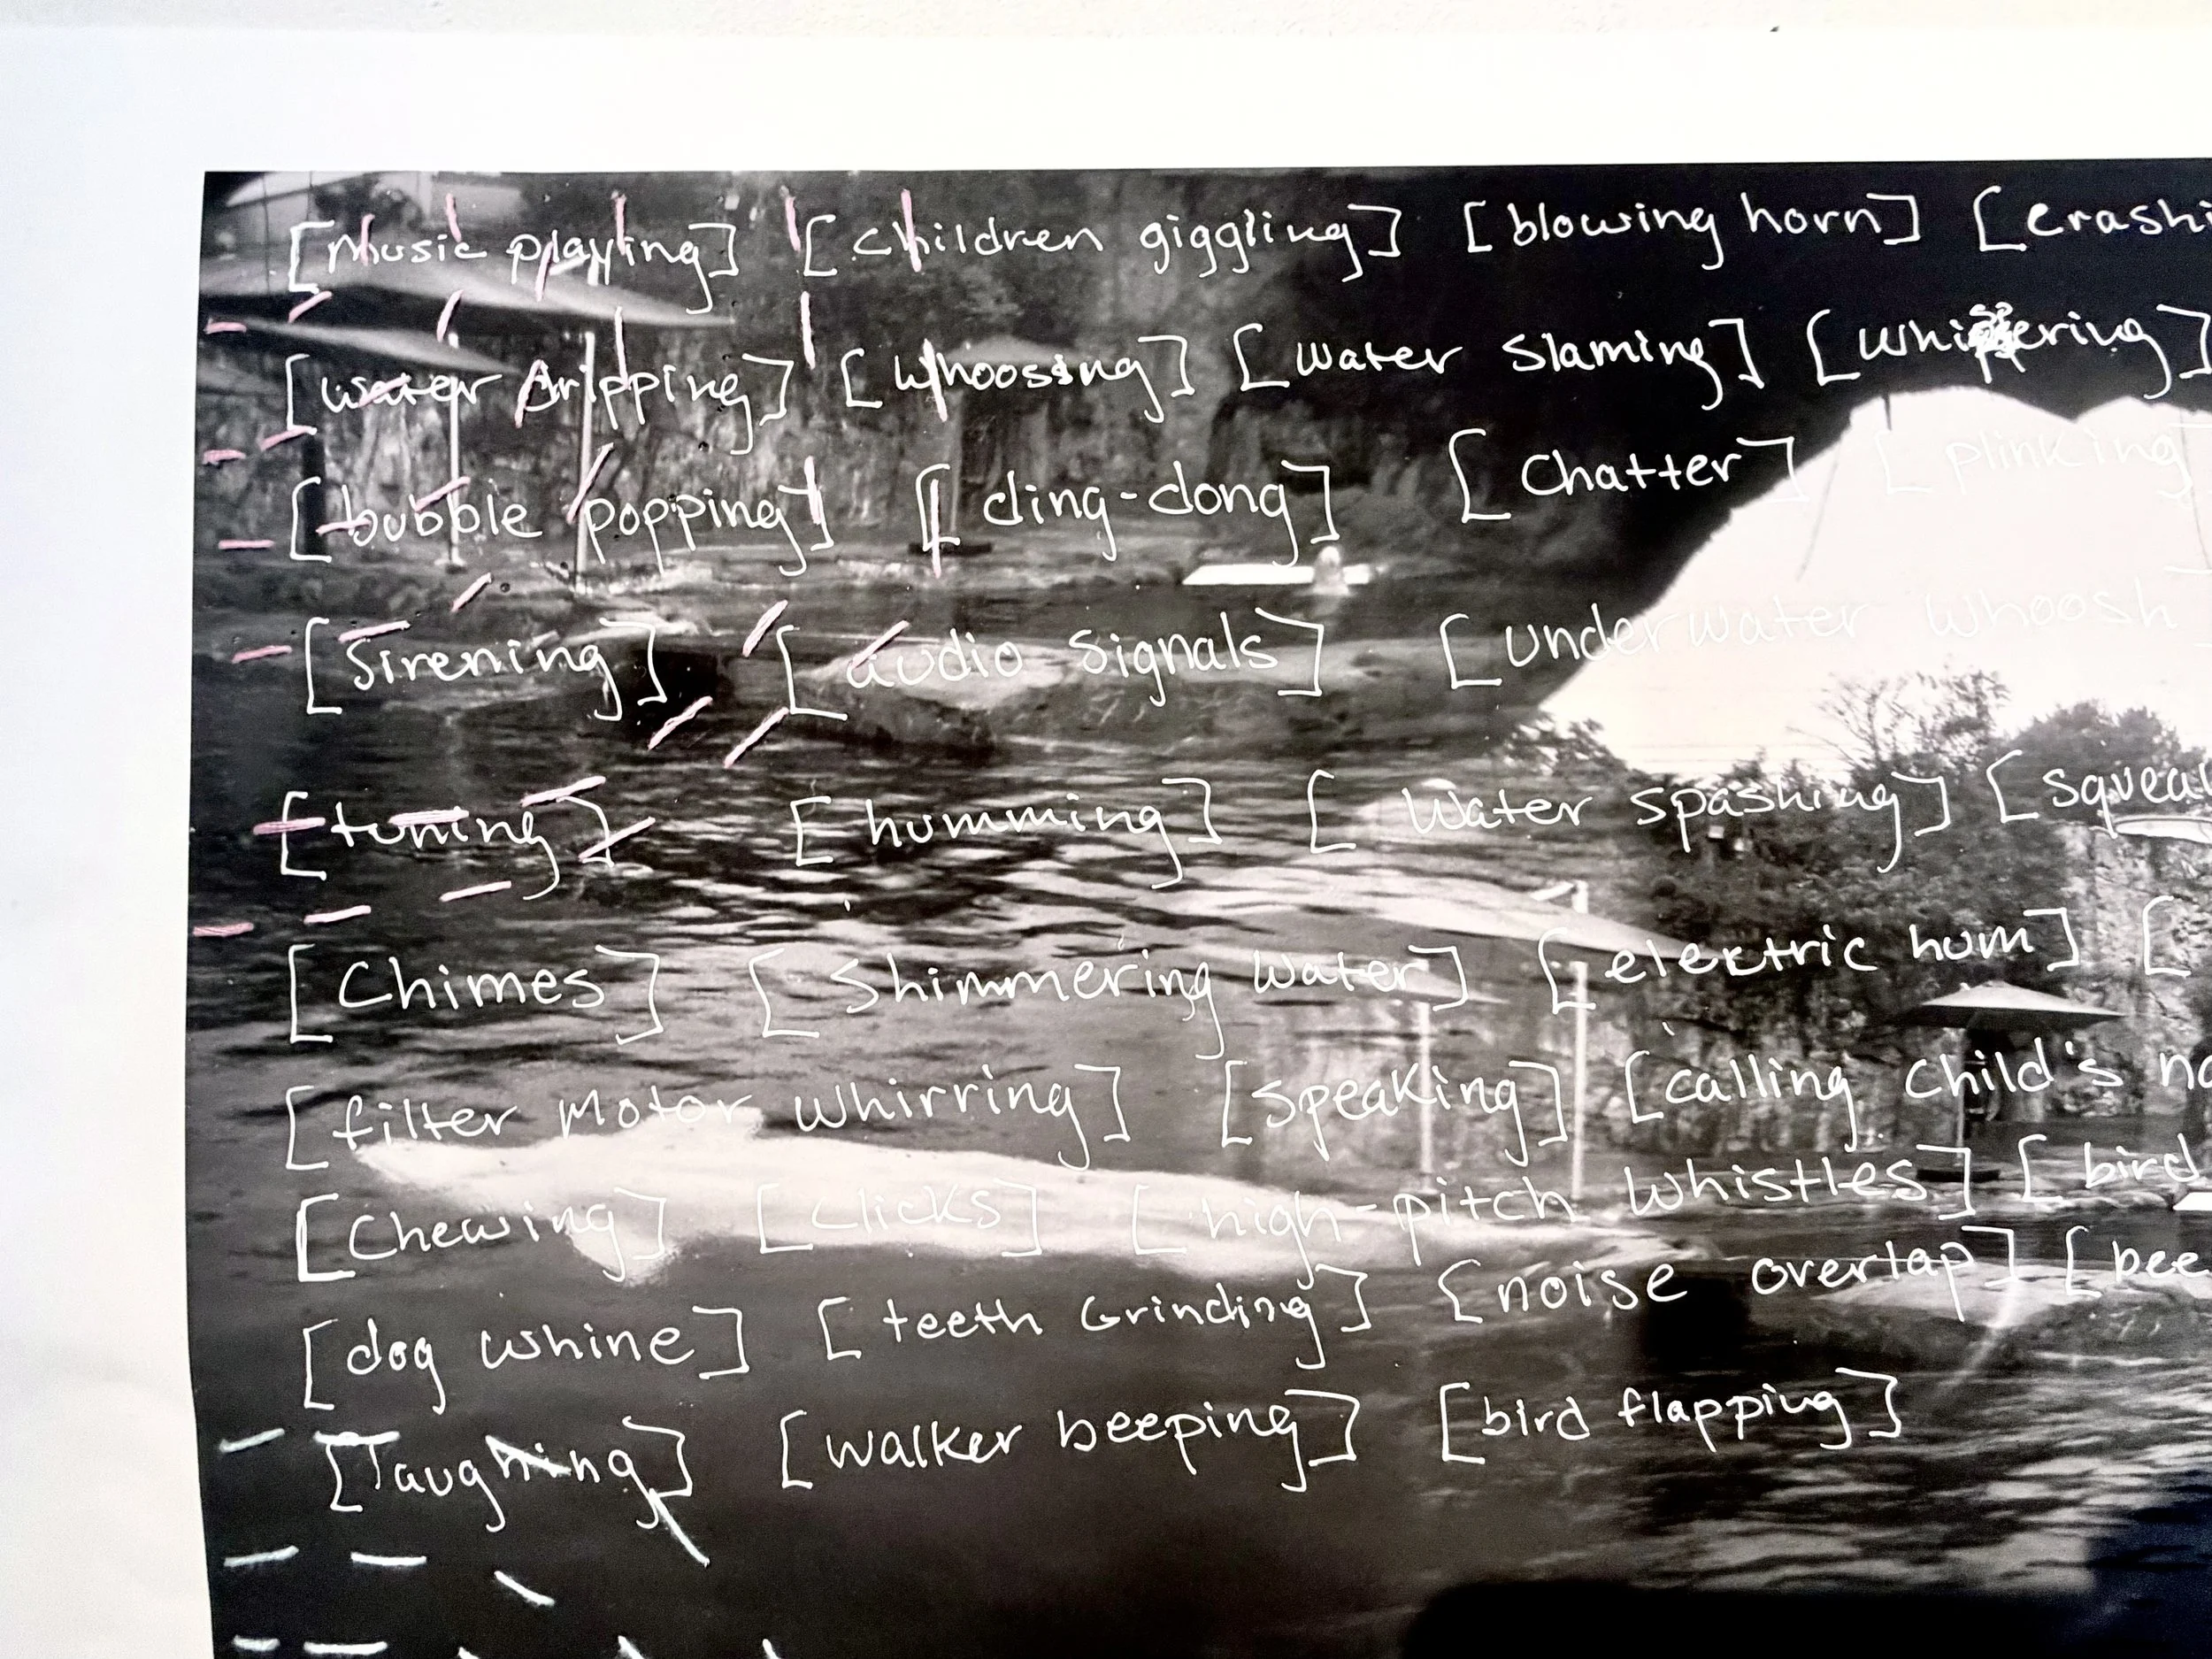 [music playing] [children giggling] [blowing horn] [crashi
[water dripping] [whoosing] [water slaming] [whispering]
[bubble popping] [ding-dong] [Chatter] [plinking]
[Sirening] [audio signals] [underwater whoosh]
[tuning] [humming] [Water spashing] [squea
[Chimes] [Shimmering water] [electric hum] [
[filter Motor whirring] [speaking] [calling child's na
[Chewing] [clicks] [high-pitch whistles] [bird
[dog whine] [teeth Grinding] [noise overlap] [bee
[laughing] [walker beeping] [bird flapping]